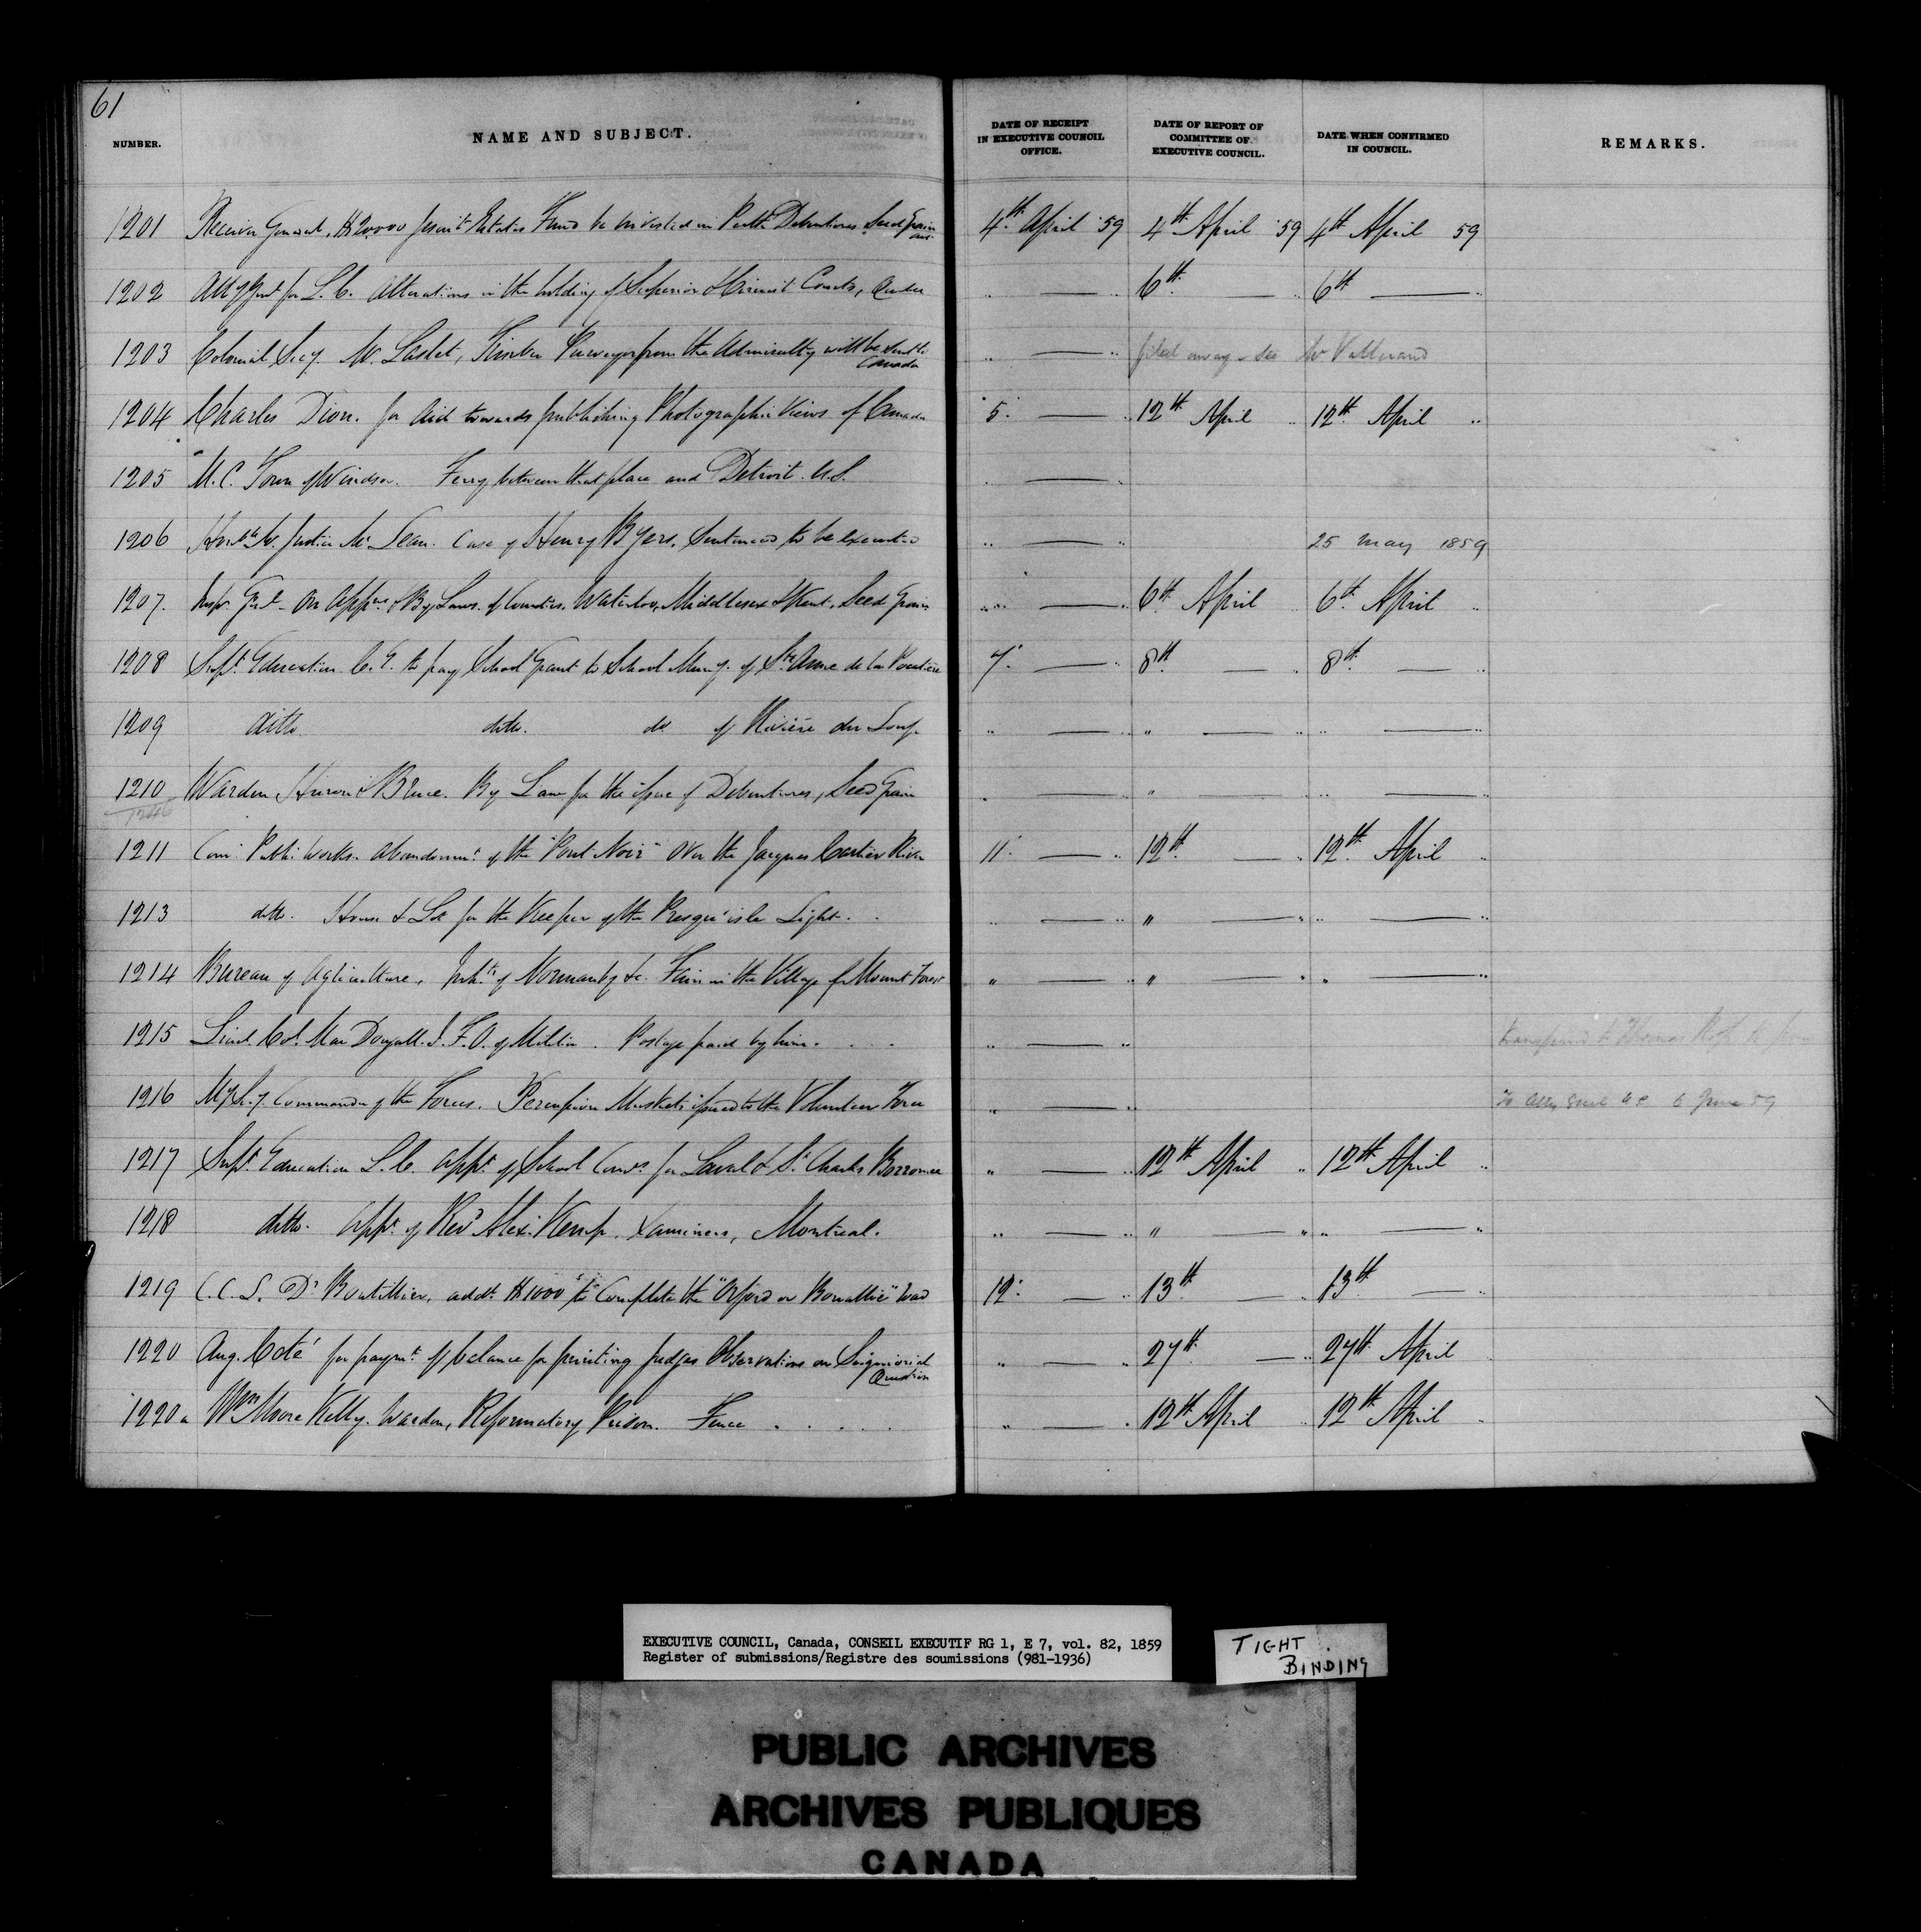 61
NUMBER. NAME AND SUBJECT. DATE OF RECEIPT IN EXECUTIVE COUNCIL OFFICE. DATE OF REPORT OF COMMITTEE OF EXECUTIVE COUNCIL. DATE WHEN CONFIRMED IN COUNCIL. REMARKS.
1201 Receiver General, $20,000 Jesuit Estates Fund to be invested in Perth Debentures Seed Grain 4th. April '59 4th April '59 4th April 59
1202 Atty Genl for L.C. Alterations in the holding of Superior & Circuit Courts, Quebec " — " 6th — " 6th — "
1203 Colonial Secy. Mr. Laslet, Timber Purveyor from the Admiralty will be sent to Canada " — " filed away - see
1204 Charles Dion. for Aid towards publishing Photographic Views of Canada 5. — " 12th April " 12th April "
1205 M.C. Town of Windsor. Ferry between that place and Detroit. U.S. " —
1206 Honble Mr. Justice McLean. Case of Henry Byers. Sentenced to be executed " — " 25 May 1859
1207. Insp. Genl. On Appns & By Laws. of Counties, Waterloo, Middlesex & Kent, Seed Grain " — " 6th April 6th April "
1208 Supt. Education C.E. to pay School Grant to School Muny. of Ste Anne de la Pocatière 7. — " 8th — " 8th — "
1209 ditto ditto. do of Rivière du Loup " — " " — " " — "
1210 Warden Huron & Bruce. By Law for the issue of Debentures, Seed Grain " — " " — " " — "
1246
1211 Com. Public Works. Abandonmt of the "Pont Noir" over the Jacques Cartier River 11. — " 12th — " 12th April "
1213 ditto. House & Lot for the Keeper of the Presqu'isle Light. " — " " — " " — "
1214 Bureau of Agriculture, Inhts of Normanby &c. Fair in the Village of Mount Forest " — " " — " " — "
1215 Lieut. Col. MacDougall. I.F.O. of Militia. Postage paid by him. " — " transferred to Thomas
1216 My Secy. Commander of the Forces. Percussion Muskets issued to the Volunteer Force " — " To Atty Genl 6 June 59
1217 Supt. Education L.C. Appt. of School Comrs. for Laval & St. Charles Borromée " — " 12th April " 12th April "
1218 ditto. Appt. of Revd Alex. Kemp. Examiners, Montreal. " — " " — " " — "
1219 C.C.L. Dr Boutillier, addl. $1000 to Complete the "Orford or Bonallie" road 12. — " 13th — " 13th — "
1220 Aug. Coté for paymt. of balance for printing Judges Observations on Seigniorial Question " — " 27th — " 27th April
1220a Wm Moore Kelly. Warden, Reformatory Prison. Fence . . . . . " — . 12th April " 12th April "
EXECUTIVE COUNCIL, Canada, CONSEIL EXECUTIF RG 1, E 7, vol. 82, 1859
Register of submissions/Registre des soumissions (981-1936)
TIGHT
BINDING
PUBLIC ARCHIVES
ARCHIVES PUBLIQUES
CANADA